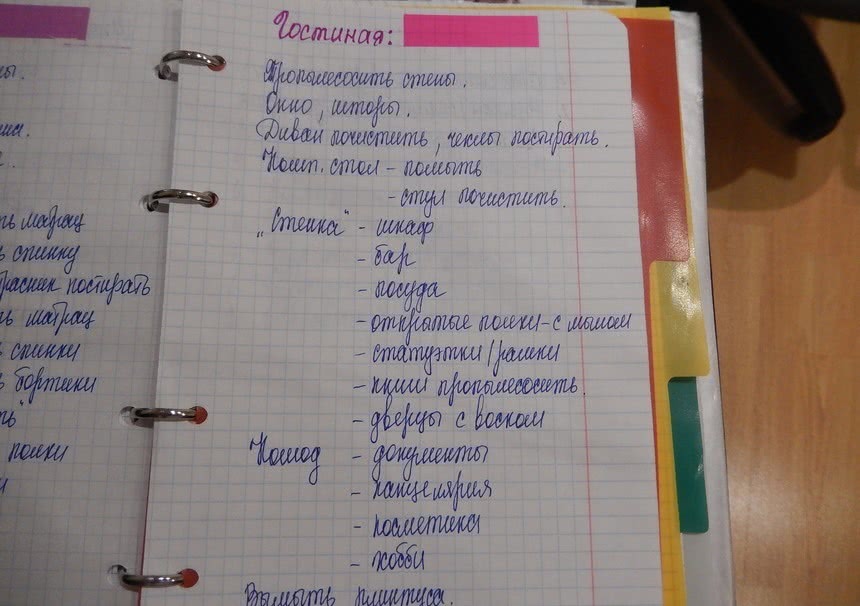 Гостиная:
Пропылесосить стены.
Окно, шторы.
Диван почистить, чехлы постирать.
Комп. стол - помыть
- стул почистить.
"Стенка" - шкаф
- бар
- посуда
- открытые полки - с мылом
- статуэтки/рамки
- книги пропылесосить.
- дверцы с воском
Комод - документы
- канцелярия
- косметика
- хобби
Вымыть плинтуса.
матрац
спинку
постирать
матрац
спинки
бортики
полки